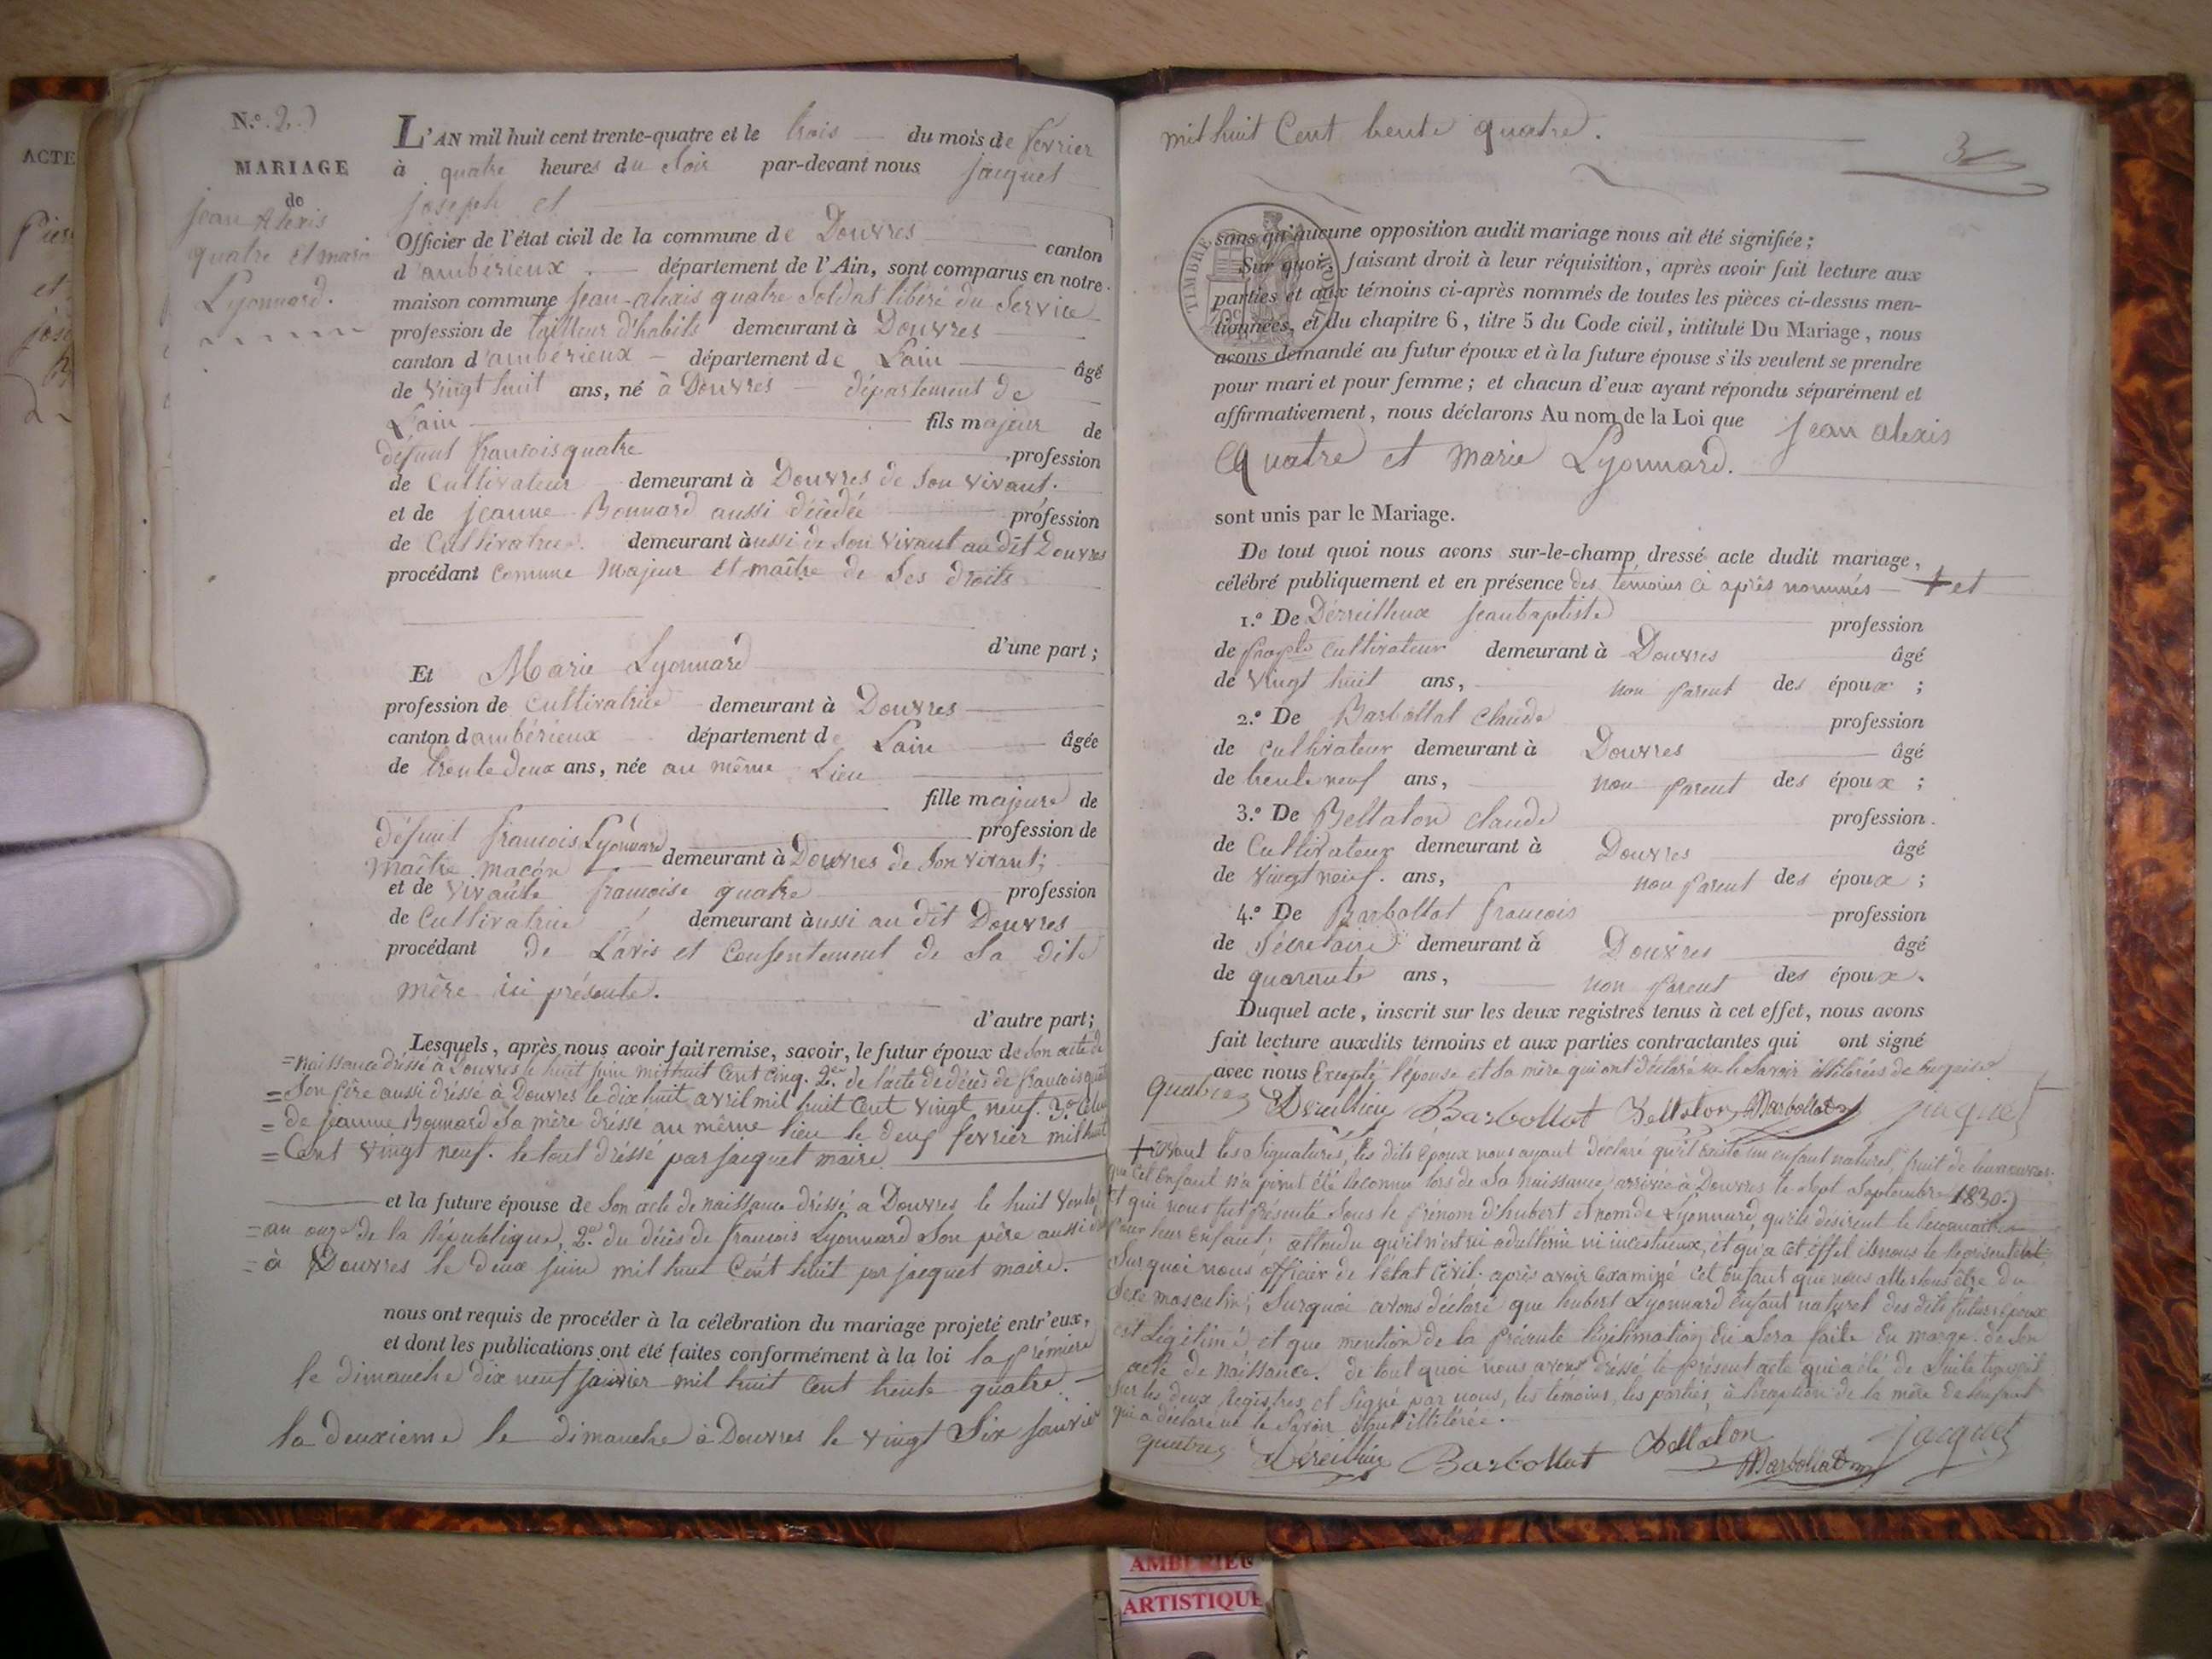 ACTE
N.º 2.
MARIAGE
de
jean Alexis
quatre et marie
Lyonnard.
L'AN mil huit cent trente-quatre et le trois du mois de fevrier
à quatre heures du soir par-devant nous jacquet
joseph et
Officier de l'état civil de la commune de Douvres canton
d'ambérieux département de l'Ain, sont comparus en notre
maison commune jean-alexis quatre Soldat libéré du Service
profession de tailleur d'habits demeurant à Douvres
canton d'ambérieux département de Lain âgé
de vingt huit ans, né à Douvres département de
Lain fils majeur de
défunt francois quatre profession
de Cultivateur demeurant à Douvres de Son vivant.
et de jeanne Bonnard aussi décédée profession
de Cultivatrice demeurant aussi de Son vivant au dit Douvres
procédant comme Majeur et maître de Ses droits
d'une part;
Et Marie Lyonnard
profession de Cultivatrice demeurant à Douvres
canton d'ambérieux département de Lain âgée
de trente deux ans, née au même Lieu
fille majeure de
défunt francois Lyonnard profession de
maître maçon demeurant à Douvres de Son vivant;
et de vivante francoise quatre profession
de Cultivatrice demeurant aussi au dit Douvres
procédant de L'avis et Consentement de Sa dite
mère ici présente.
d'autre part;
Lesquels, après nous avoir fait remise, savoir, le futur époux de Son acte de
= naissance dréssé à Douvres le huit juin mil huit Cent cinq. 2.º de l'acte de décès de francois quatre
= Son père aussi dréssé à Douvres le dix huit avril mil huit Cent vingt neuf. 3.º Celui
= de jeanne Bonnard Sa mère dréssé au même lieu le deux fevrier mil huit
= Cent vingt neuf. le tout dréssé par jacquet maire.
et la future épouse de Son acte de naissance dréssé a Douvres le huit Ventose
= an onze de la République, 2.º du décès de francois Lyonnard Son père aussi
= à Douvres le deux juin mil huit Cent huit par jacquet maire.
nous ont requis de procéder à la célébration du mariage projeté entr'eux,
et dont les publications ont été faites conformément à la loi la premiere
le dimanche dix neuf janvier mil huit Cent trente quatre
la deuxieme le dimanche à Douvres le vingt Six janvier
mil huit Cent trente quatre.
3
TIMBRE ROYAL
sans qu'aucune opposition audit mariage nous ait été signifiée;
Sur quoi, faisant droit à leur réquisition, après avoir fait lecture aux
parties et aux témoins ci-après nommés de toutes les pièces ci-dessus men-
tionnées, et du chapitre 6, titre 5 du Code civil, intitulé Du Mariage, nous
avons demandé au futur époux et à la future épouse s'ils veulent se prendre
pour mari et pour femme; et chacun d'eux ayant répondu séparément et
affirmativement, nous déclarons Au nom de la Loi que jean alexis
Quatre et Marie Lyonnard.
sont unis par le Mariage.
De tout quoi nous avons sur-le-champ dressé acte dudit mariage,
célébré publiquement et en présence des témoins ci après nommés + et
1.º De Dérreilleux jean baptiste profession
de cultivateur demeurant à Douvres âgé
de vingt huit ans, non parent des époux;
2.º De Barbollat Claude profession
de cultivateur demeurant à Douvres âgé
de trente neuf ans, non parent des époux;
3.º De Beltaton claude profession.
de Cultivateur demeurant à Douvres âgé
de vingt neuf. ans, non parent des époux;
4.º De Barbollat francois profession
de Sécretaire demeurant à Douvres âgé
de quarante ans, non parent des époux.
Duquel acte, inscrit sur les deux registres tenus à cet effet, nous avons
fait lecture auxdits témoins et aux parties contractantes qui ont signé
avec nous Excepté l'épouse et Sa mère qui ont déclaré ne le Savoir illitérées de
quatre Barbollat Barbollat jacquet
+ avant les Signatures, les dits époux nous ayant déclaré qu'il existe un enfant naturel, fruit de leurs œuvres
que cet Enfant n'a point été reconnu lors de Sa naissance, arrivée à Douvres le Sept Septembre 1830.
Et qui nous fut présenté Sous le prénom d'hubert et nom de Lyonnard, qu'ils désirent le reconnaitre
Pour leur Enfant; attendu qu'il n'est ni adultérin ni incestueux, et qu'a cet éffet ils nous le représentent
Sur quoi nous officier de l'état civil. après avoir Examiné Cet Enfant que nous attestons être du
Sexe masculin; Sur quoi avons déclaré que hubert Lyonnard enfant naturel des dits futurs époux
est Légitimé, et que mention de la présente légitimation En Sera faite En marge de Son
acte de naissance. de tout quoi nous avons dréssé le présent acte qui a été de Suite transcrit
Sur les deux registres, et Signé par nous, les témoins, les parties, à l'exception de la mère de l'enfant
qui a déclaré ne le Savoir étant illitérée.
quatre Barbollat Barbollat jacquet
AMBERIEU
ARTISTIQUE